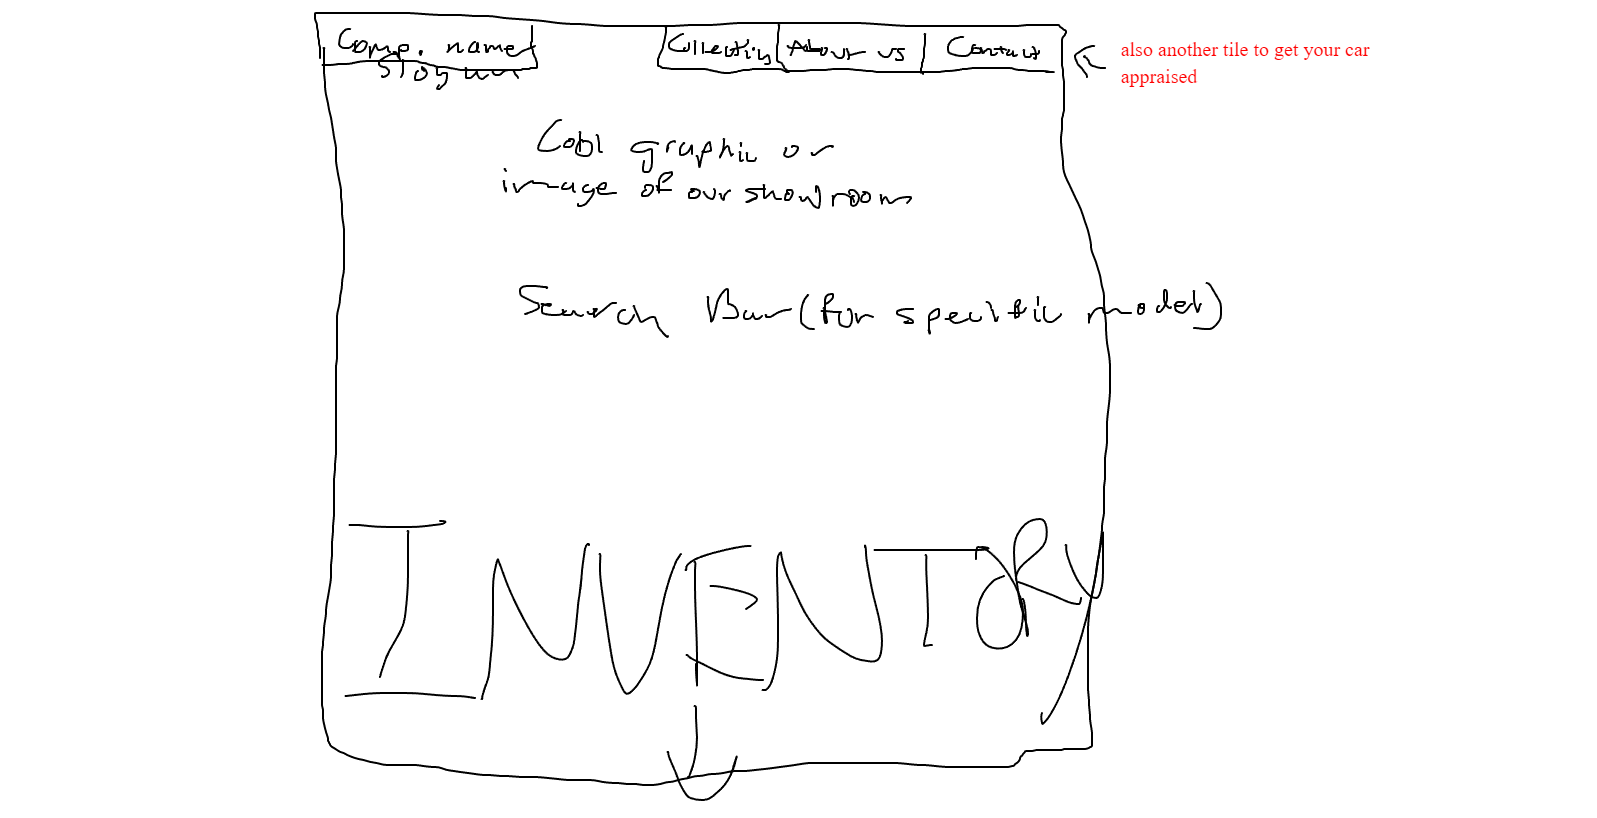 Comp. name
Slogan
Collection About us Contact
also another tile to get your car
appraised
Cool graphic or
image of our showroom
Search Bar (for specific model)
INVENTORY